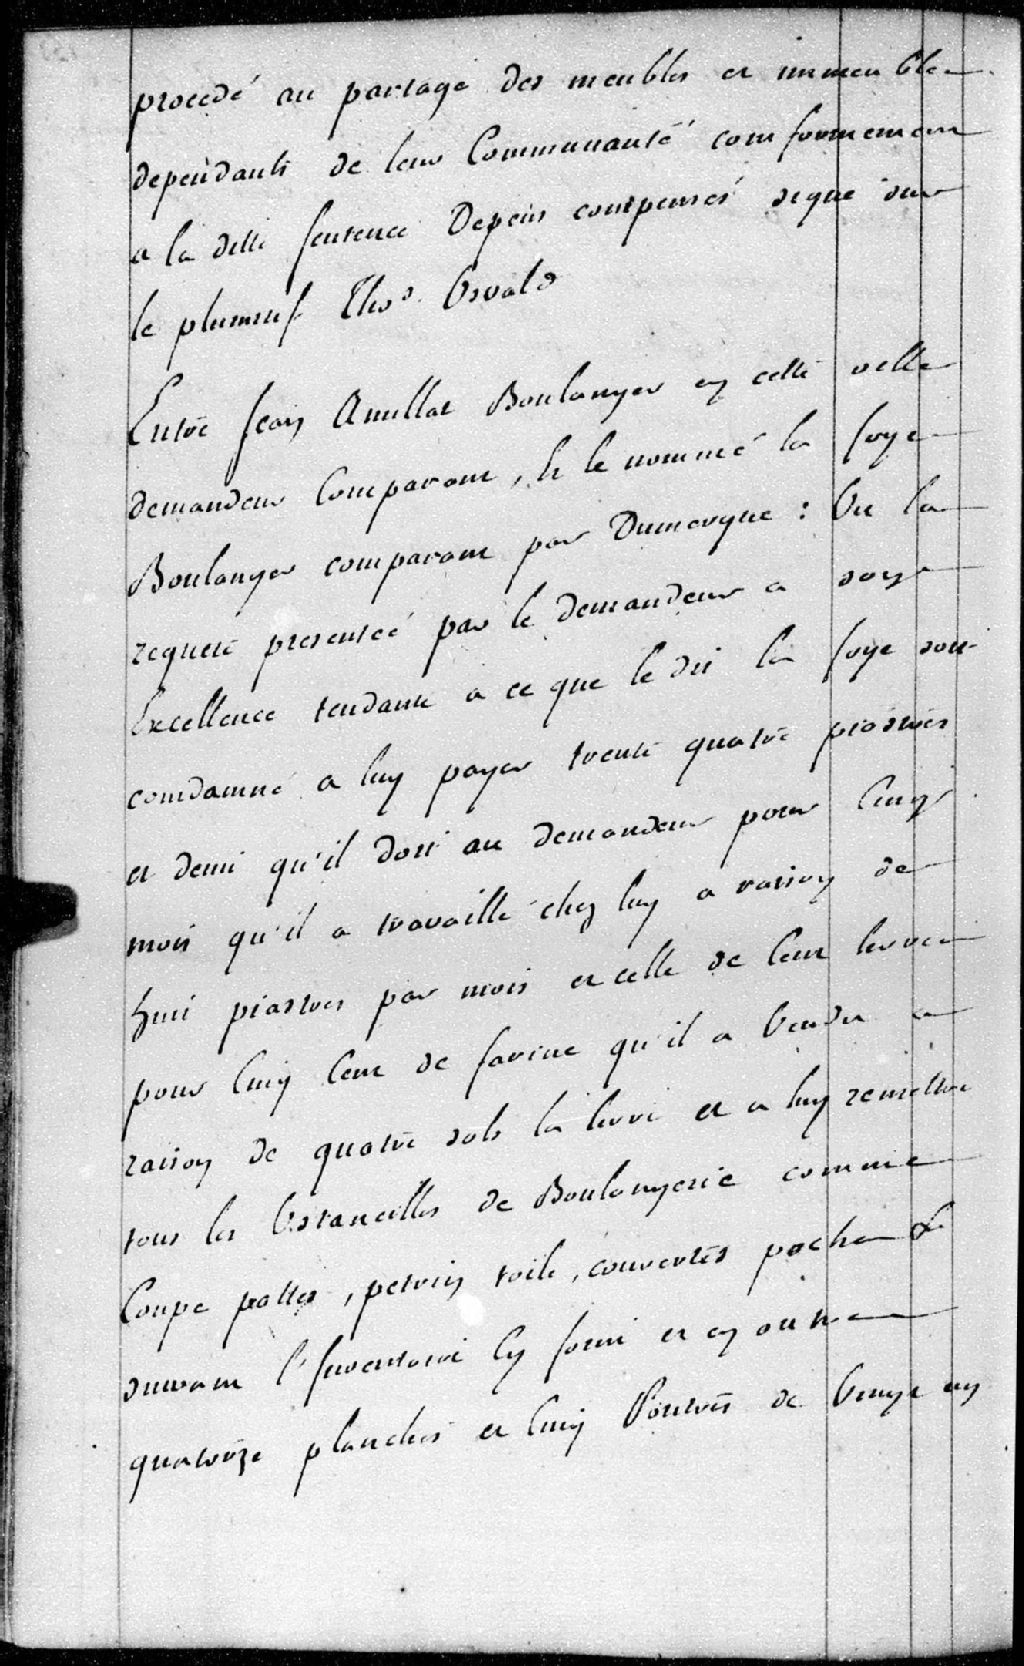 procedé au partage des meubles et immeubles
dependants de leur Communauté conformement
a la ditte sentence Depens compensés signé sur
le plumitif Thos. Osvald
Entre Jean Amillat Boulanger en cette ville
demandeur Comparant, & le nommé la foye
Boulanger comparant par Dumergue : Vu la
requete presenteé par le demandeur a son
Excellence tendante a ce que le dit la foye soit
condamné a luy payer trente quatre piastres
et demi qu'il doit au demandeur pour Cinq
mois qu'il a travaillé chez luy a raison de
huit piastres par mois et celle de Cent livres
pour Cinq Cent de farine qu'il a Vendu a
raison de quatre sols la livre et a luy remettre
tous les Ustancilles de Boulongerie comme
Coupe pattes, petrin toile, couvertes poche &
suivant l'Inventaire Cy joint et en outre
quatorze planches et Cinq Poutres de Vingt un